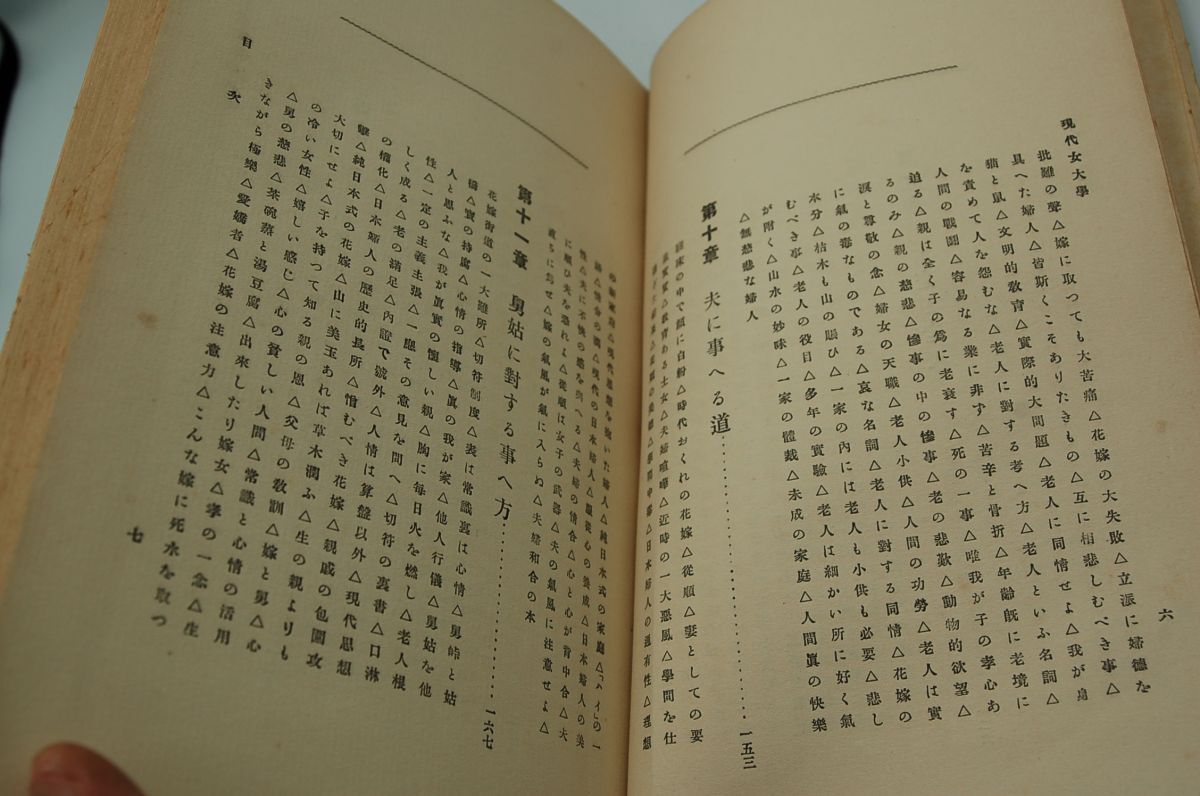 現代女大學
六
批難の聲△嫁に取つても大苦痛△花嫁の大失敗△立派に婦德を
具へた婦人△皆斯くこそありたきもの△互に相悲しむべき事△
猫と鼠△文明的敎育△實際的大問題△老人に同情せよ△我が身
を責めて人を怨むな△老人に對する考へ方△老人といふ名詞△
人間の戰鬪△容易なる業に非ず△苦辛と骨折△年齡旣に老境に
迫る△親は全く子の爲に老衰す△死の一事△唯我が子の孝心あ
るのみ△親の慈悲△慘事の中の慘事△老の悲歎△動物的欲望△
淚と尊敬の念△婦女の天職△老人小供△人間の功勞△老人は實
に氣の毒なものである△哀な名詞△老人に對する同情△花嫁の
本分△枯木も山の賑ひ△一家の內には老人も小供も必要△悲し
むべき事△老人の役目△多年の實驗△老人は細かい所に好く氣
が附く△山水の妙味△一家の體裁△未成の家庭△人間眞の快樂
△無慈悲な婦人
第十章 夫に事へる道…………一五三
寢床の中で顏に白粉△時代おくれの花嫁△從順△妻としての要
素△敎育ある士女△夫婦喧嘩△近時の一大惡風△學問を仕
△日本婦人の通有性△理想
△現代思想を抱いた婦人△純日本式の家庭△
△現代の日本婦人△服從心の養成△日本婦人の美
性△夫に不快の感を與へる△夫婦の情合△心と心が背中合△夫
に順ひ夫を恐れよ△從順は女子の武器△夫の氣風に注意せよ△
直ちに旨せ△嫁の氣風が氣に入らぬ△夫婦和合の本
第十一章 舅姑に對する事へ方…………一六七
花嫁街道の一大難所△切符制度△表は常識裏は心情△舅峠と姑
橋△實の持腐△心情の指導△眞の我が家△他人行儀△舅姑を他
人と思ふな△我が眞實の懷しい親△胸に每日火を燃し△老人根
性△一定の主義主張△一應その意見を問へ△切符の裏書△口淋
しく成る△老の滿足△內證で號外△人情は算盤以外△現代思想
の權化△日本婦人の歷史的長所△憎むべき花嫁△親戚の包圍攻
擊△純日本式の花嫁△山に美玉あれば草木潤ふ△生の親よりも
大切にせよ△子を持つて知る親の恩△父母の敎訓△嫁と舅△心
の冷い女性△嬉しい感じ△心の貧しい人間△常識と心情の活用
△舅の慈悲△茶碗蒸と湯豆腐△出來したり嫁女△孝の一念△生
きながら極樂△愛嬌者△花嫁の注意力△こんな嫁に死水を取つ
目次
七